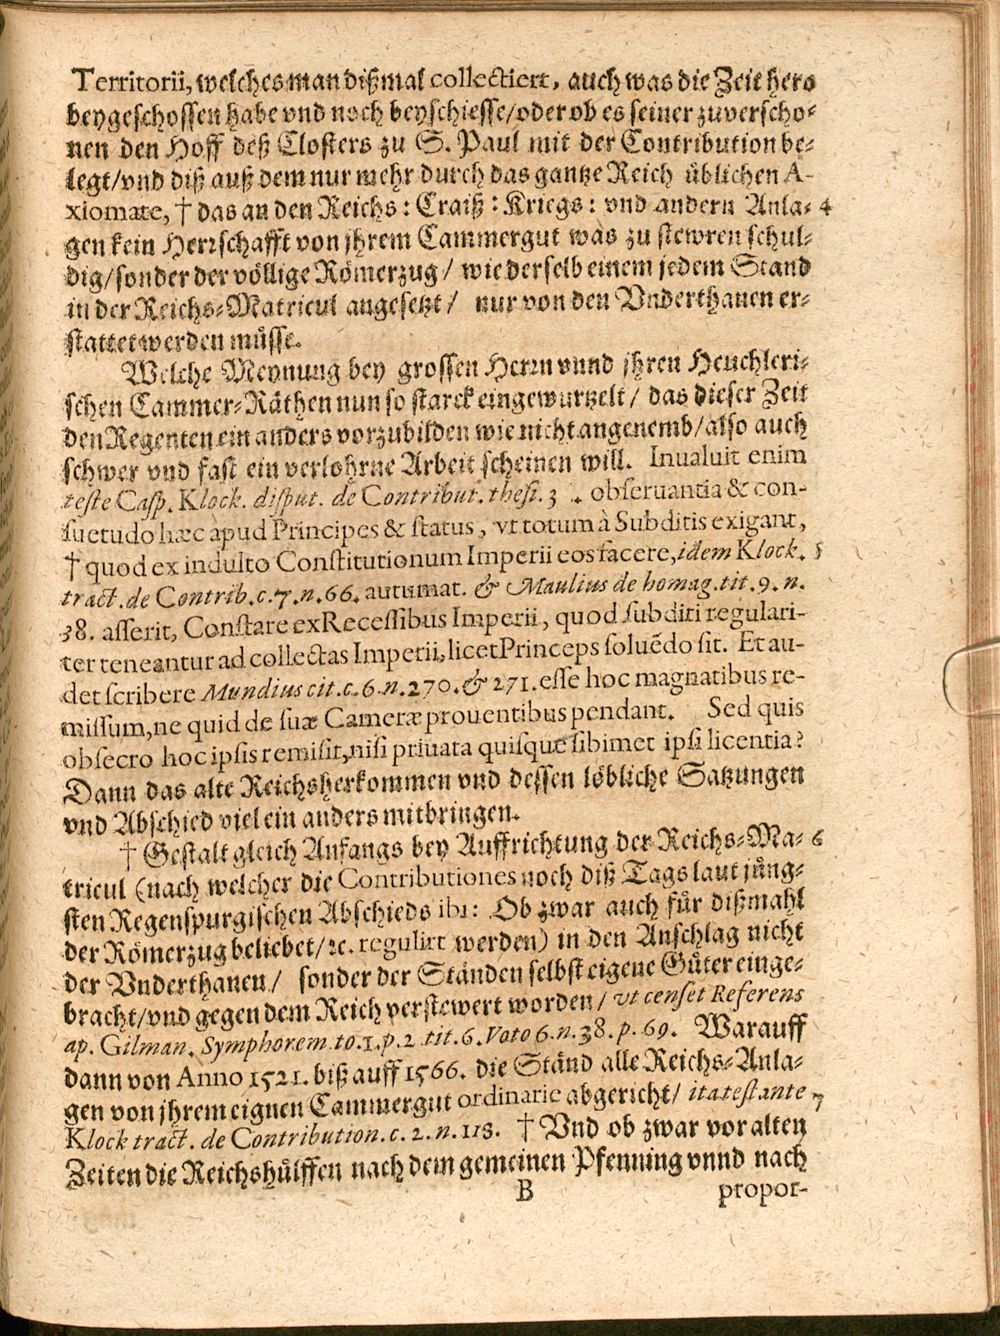 Territorii, welches man dißmal collectiert, auch was die Zeit hero
beygeschossen habe vnd noch beyschiesse/oder ob es seiner zuverscho-
nen den Hoff deß Closters zu S. Paul mit der Contribution be-
legt/vnd diß auß dem nur mehr durch das gantze Reich üblichen A-
xiomate, † das an den Reichs: Craiß: Kriegs: vnd andern Anla- 4
gen kein Herrschafft von jhrem Cammergut was zu stewren schul-
dig/sonder der völlige Römerzug/ wie derselb einem jedem Stand
in der Reichs-Matricul angesetzt/ nur von den Vnderthanen er-
stattet werden müsse.
Welche Meynung bey grossen Herrn vnnd jhren Heuchleri-
schen Cammer-Räthen nun so starck eingewurtzelt/ das dieser Zeit
den Regenten ein anders vorzubilden wie nicht angenemb/also auch
schwer vnd fast ein verlohrne Arbeit scheinen will. Invaluit enim
teste Casp. Klock. disput. de Contribut. thesi. 3. obseruantia & con-
suetudo hæc apud Principes & status, vt totum à Subditis exigant,
† quod ex indulto Constitutionum Imperii eos facere, idem Klock. 5
tract. de Contrib. c. 7. n. 66. autumat. & Maulius de homag. tit. 9. n.
38. asserit, Constare ex Recessibus Imperii, quod subditi regulari-
ter teneantur ad collectas Imperii, licet Princeps soluẽdo sit. Et au-
det scribere Mundius cit. c. 6. n. 270. & 271. esse hoc magnatibus re-
missum, ne quid de suæ Cameræ prouentibus pendant. Sed quis
obsecro hoc ipsis remisit, nisi priuata quisque sibimet ipsi licentia?
Dann das alte Reichsherkommen vnd dessen löbliche Satzungen
vnd Abschied viel ein anders mitbringen.
† Gestalt gleich Anfangs bey Auffrichtung der Reichs-Ma- 6
tricul (nach welcher die Contributiones noch diß Tags laut jüng-
sten Regenspurgischen Abschieds ibi: Ob zwar auch für dißmahl
der Römerzug beliebet/ ꝛc. regulirt werden) in den Anschlag nicht
der Vnderthanen/ sonder der Ständen selbst eigene Güter einge-
bracht/vnd gegen dem Reich verstewert worden/ vt censet Referens
ap. Gilman. Symphorem to. 1. p. 2 tit. 6. Voto 6. n. 38. p. 69. Warauff
dann von Anno 1521. biß auff 1566. die Ständ alle Reichs-Anla-
gen von jhrem eignen Cammergut ordinarie abgericht/ ita testante 7
Klock tract. de Contribution. c. 2. n. 113. † Vnd ob zwar vor alten
Zeiten die Reichshülffen nach dem gemeinen Pfenning vnnd nach
B propor-